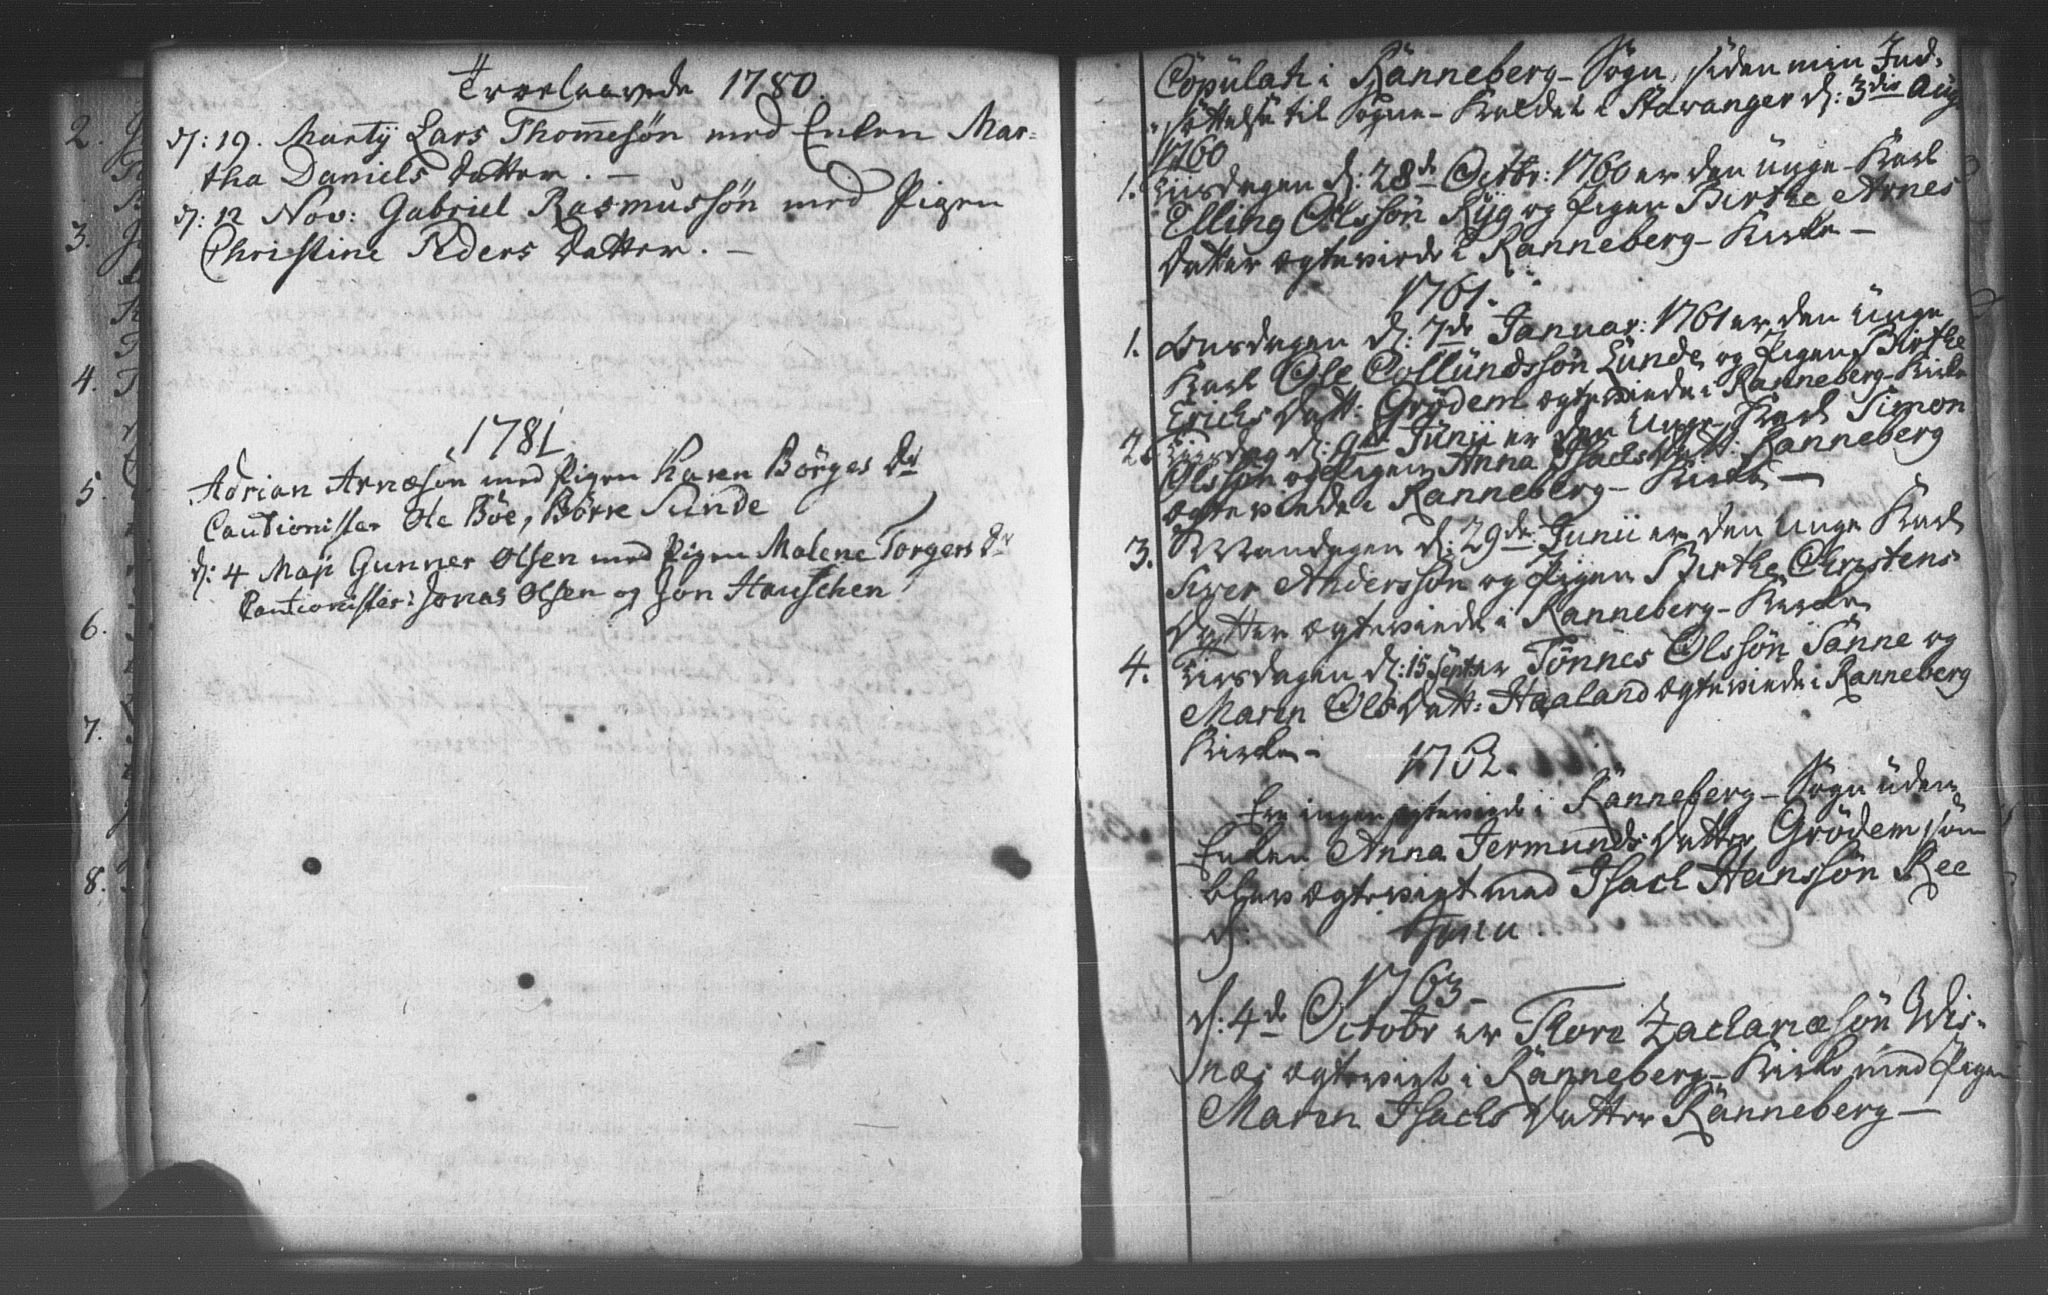 Troelovede 1780.
d: 19. Martÿ Lars Thommesøn med Enken Mar-
tha Daniels Datter. —
d: 12 Nov: Gabriel Rasmussøn med Pigen
Christine Peders Datter. —
1781
Adrian Arnæsøn med Pigen Karen Börges Dr
Cautionister Ole Böe, Börre Sunde
d: 4 Maji Gunner Olsen med Pigen Malene Torgers Dr
Cautionister: Jonas Olsen og Jon Hauschen
2.
3.
4.
5.
6.
7.
8.
Copulati i Ranneberg-Sogn, siden min Ind-
sættelse til Sogne-Kaldet i Stavanger d: 3die Aug
1760
1. Tiirsdagen d: 28de Octbr: 1760 er den unge Karl
Elling Olssøn Ryg og Pigen Birthe Arnes
Datter ægteviede i Ranneberg-Kirke —
1761.
1. Onsdagen d: 7de Januar: 1761 er den unge
Karl Ole Collundssøn Lunde og Pigen Birthe
Erichs Datt: Grødem ægteviede i Ranneberg-Kirke
2. Tiirsdag d: 9de Junii er den Unge Karl Simon
Olssøn og Pigen Anna Isachs Datt: Ranneberg
ægteviede i Ranneberg-Kirke —
3. Mandagen d: 29de Junii er den Unge Karl
Siver Anderssøn og Pigen Birthe Christens
Datter ægteviede i Ranneberg-Kirke
4. Tiirsdagen d: 15 Sept: er Tönnes Olssøn Sänne og
Maren Ols Datt: Haaland ægteviede i Ranneberg
Kirke —
1762.
Ere ingen ægteviede i Ranneberg-Sogn uden
Enken Anna Jermunds Datter Grødem som
blev ægteviet med Isach Hanssøn Ree
d:
1763 —
d: 4de Octobr er Thore Zachariæsøn Wis-
næs ægteviet i Ranneberg-Kirke med Pigen
Maren Isachs Datter Ranneberg —